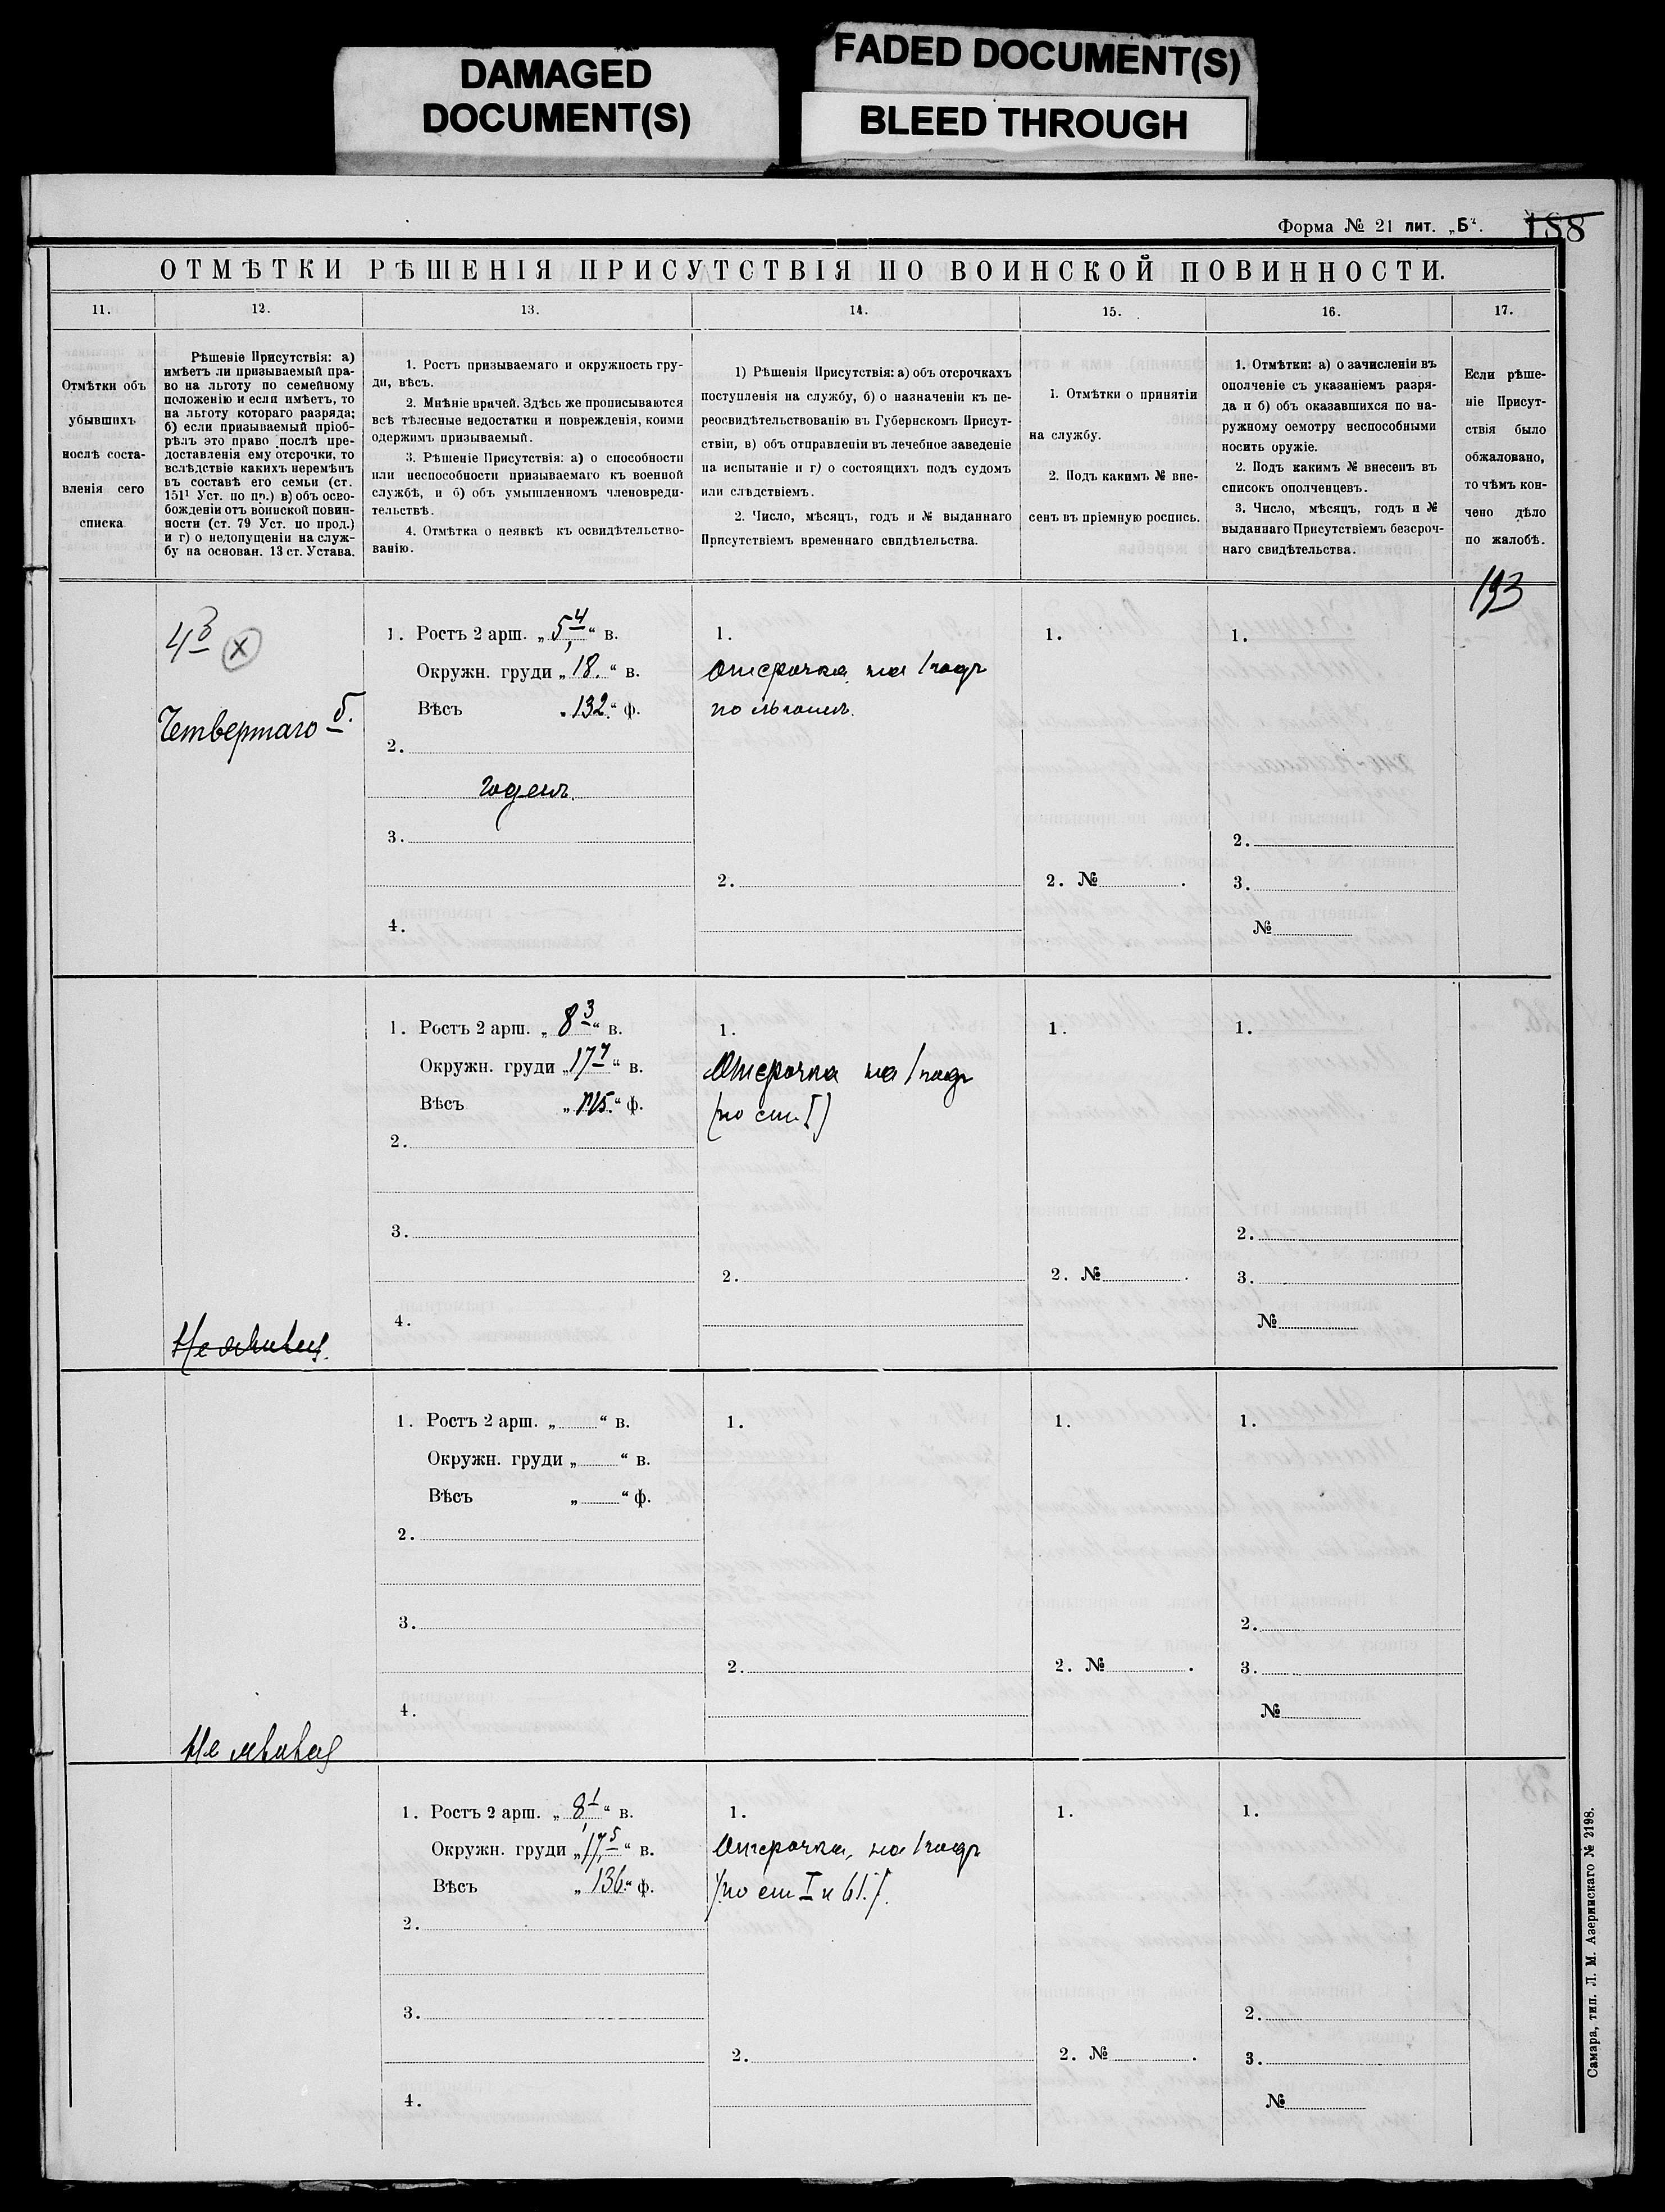 DAMAGED
DOCUMENT(S)
FADED DOCUMENT(S)
BLEED THROUGH
Форма № 21 лит. „Б“.
188
ОТМѢТКИ РѢШЕНІЯ ПРИСУТСТВІЯ ПО ВОИНСКОЙ ПОВИННОСТИ.
11.
12.
13.
14.
15.
16.
17.
Отмѣтки объ
убывшихъ
послѣ соста-
вленія сего
списка
Рѣшеніе Присутствія: а)
имѣетъ ли призываемый пра-
во на льготу по семейному
положенію и если имѣетъ, то
на льготу котораго разряда;
б) если призываемый пріоб-
рѣлъ это право послѣ пре-
доставленія ему отсрочки, то
вслѣдствіе какихъ перемѣнъ
въ составѣ его семьи (ст.
151¹ Уст. по пр.) в) объ осво-
божденіи отъ воинской повин-
ности (ст. 79 Уст. по прод.)
и г) о недопущеніи на служ-
бу на основан. 13 ст. Устава.
1. Ростъ призываемаго и окружность гру-
ди, вѣсъ.
2. Мнѣніе врачей. Здѣсь же прописываются
всѣ тѣлесные недостатки и поврежденія, коими
одержимъ призываемый.
3. Рѣшеніе Присутствія: а) о способности
или неспособности призываемаго къ военной
службѣ, и б) объ умышленномъ членовреди-
тельствѣ.
4. Отмѣтка о неявкѣ къ освидѣтельство-
ванію.
1) Рѣшенія Присутствія: а) объ отсрочкахъ
поступленія на службу, б) о назначеніи къ пе-
реосвидѣтельствованію въ Губернскомъ Присут-
ствіи, в) объ отправленіи въ лечебное заведеніе
на испытаніе и г) о состоящихъ подъ судомъ
или слѣдствіемъ.
2. Число, мѣсяцъ, годъ и № выданнаго
Присутствіемъ временнаго свидѣтельства.
1. Отмѣтки о принятіи
на службу.
2. Подъ какимъ № вне-
сенъ въ пріемную роспись.
1. Отмѣтки: а) о зачисленіи въ
ополченіе съ указаніемъ разря-
да и б) объ оказавшихся по на-
ружному осмотру неспособными
носить оружіе.
2. Подъ какимъ № внесенъ въ
списокъ ополченцевъ.
3. Число, мѣсяцъ, годъ и №
выданнаго Присутствіемъ безсроч-
наго свидѣтельства.
Если рѣше-
ніе Присут-
ствія было
обжаловано,
то чѣмъ кон-
чено дѣло
по жалобѣ.
193
4 б х
Четвертаго б.
1. Ростъ 2 арш. „ 5 4 “ в.
Окружн. груди „ 18. “ в.
Вѣсъ „ 132. “ ф.
2.
годенъ.
3.
4.
1.
Отсрочка на 1 годъ
по льготѣ.
2.
1.
2. №
1.
2.
3.
№
Не явился.
1. Ростъ 2 арш. „ 8 3 “ в.
Окружн. груди „ 17 7 “ в.
Вѣсъ „ “ ф.
2.
3.
4.
1.
Отсрочка на 1 годъ
(по ст. I)
2.
1.
2. №
1.
2.
3.
№
Не явился
1. Ростъ 2 арш. „ “ в.
Окружн. груди „ “ в.
Вѣсъ „ “ ф.
2.
3.
4.
1.
2.
1.
2. №
1.
2.
3.
№
1. Ростъ 2 арш. „ 8 1 “ в.
Окружн. груди „ 17 5 “ в.
Вѣсъ „ 136. “ ф.
2.
3.
4.
1.
Отсрочка на 1 годъ
/по ст I и 61./.
2.
1.
2. №
1.
2.
3.
№
Самара, тип. Л. М. Азеринскаго № 2198.